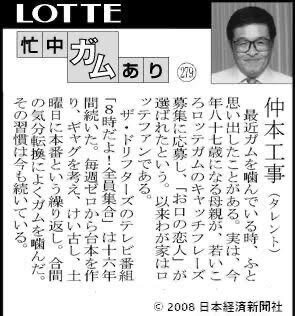 LOTTE
忙中ガムあり
279
仲本工事（タレント）
最近ガムを噛んでいる時、ふと
思い出したことがある。実は、今
年八十七歳になる母親が、若いこ
ろロッテガムのキャッチフレーズ
募集に応募し、「お口の恋人」が
選ばれたという。以来わが家はロ
ッテファンである。
ザ・ドリフターズのテレビ番組
「８時だよ！全員集合」は十六年
間続いた。毎週ゼロから台本を作
り、ギャグを考え、けい古し、土
曜日に本番という繰り返し。合間
の気分転換によくガムを噛んだ。
その習慣は今も続いている。
© 2008 日本経済新聞社